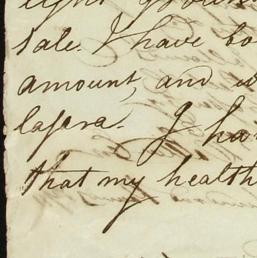 sale. I have bo
amount, and w
lapra. I ha
that my health